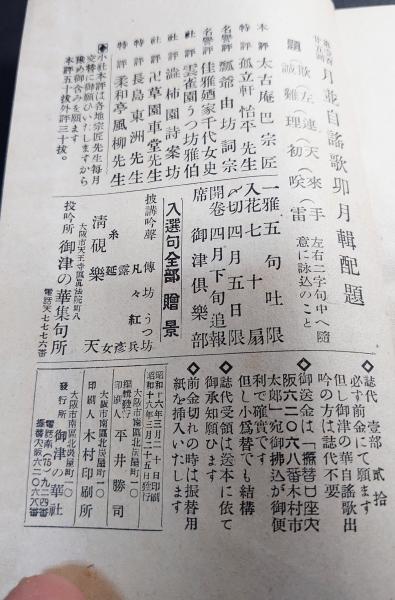 月並自謠歌卯月輯配題
題
歌 左 連 天 來 手
誠 雜 理 初 咲 雷
左右二字句中へ隨
意に詠込のこと
本評 太古庵巴宗匠
特評 孤立軒怡平先生
名譽評 瓢爺由坊詞宗
名譽評 佳雅廼家千代女史
社評 雲雀園うつ坊雅伯
社評 澁柿園詩案坊
社評 卍草園車堂先生
特評 長島東洲先生
特評 柔和亭風柳先生
◆小社本評は各地宗匠先生毎月
交替に御願ひいたしますから
豫め御含みを願ます
本評五十拔外評三十拔。
一雅五句吐限
入花七十扇
〆切四月五日限
開卷四月下旬追報
席 御津俱樂部
入選句全部 贈景
披講吟聲 傳坊 うつ坊
凡々 紅兵
糸延 露女 彥
清硯 樂天
大阪市天王寺區眞法院町八
投吟所 御津の華集句所
電話天七七七六番
◆誌代 壹部 貳拾
必ず前金にて願ます
但し御津の華自謠歌出
吟の方は誌代不要
◆御送金は「振替口座大
阪六二〇六八番木村市
太郎」宛御拂込が御便
利で確實です
但し小爲替でも結構
◆誌代受領は送本に依て
御承知願ひます
◆前金切れの時は振替用
紙を挿入いたします
昭和十六年三月二十日印刷
昭和十六年三月二十五日發行
大阪市南區北炭屋町一〇
編輯發行
印刷人 平井勝司
大阪市南區北炭屋町一〇
印刷人 木村印刷所
大阪市南區北炭屋町一〇
發行所 御津の華社
電話南(75)九二四番
振替大阪六二〇六八番